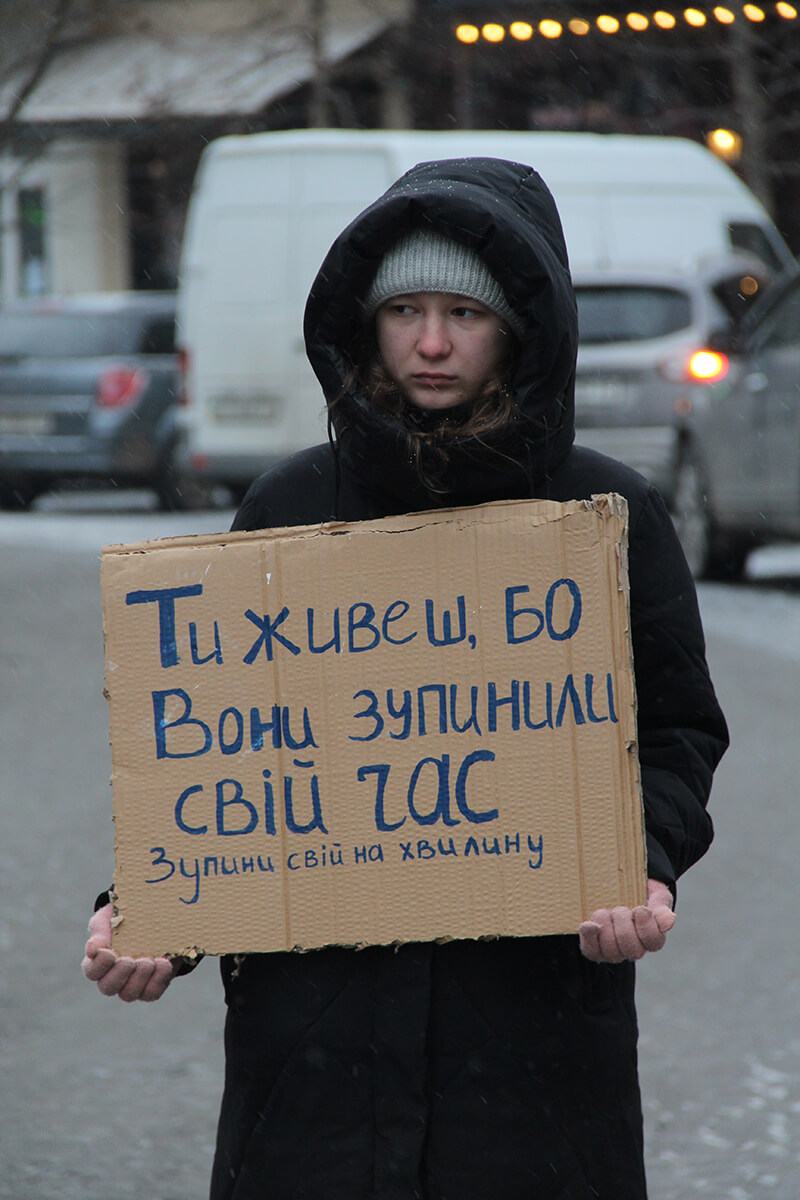 Ти живеш, бо
Вони зупинили
свій час
Зупини свій на хвилину